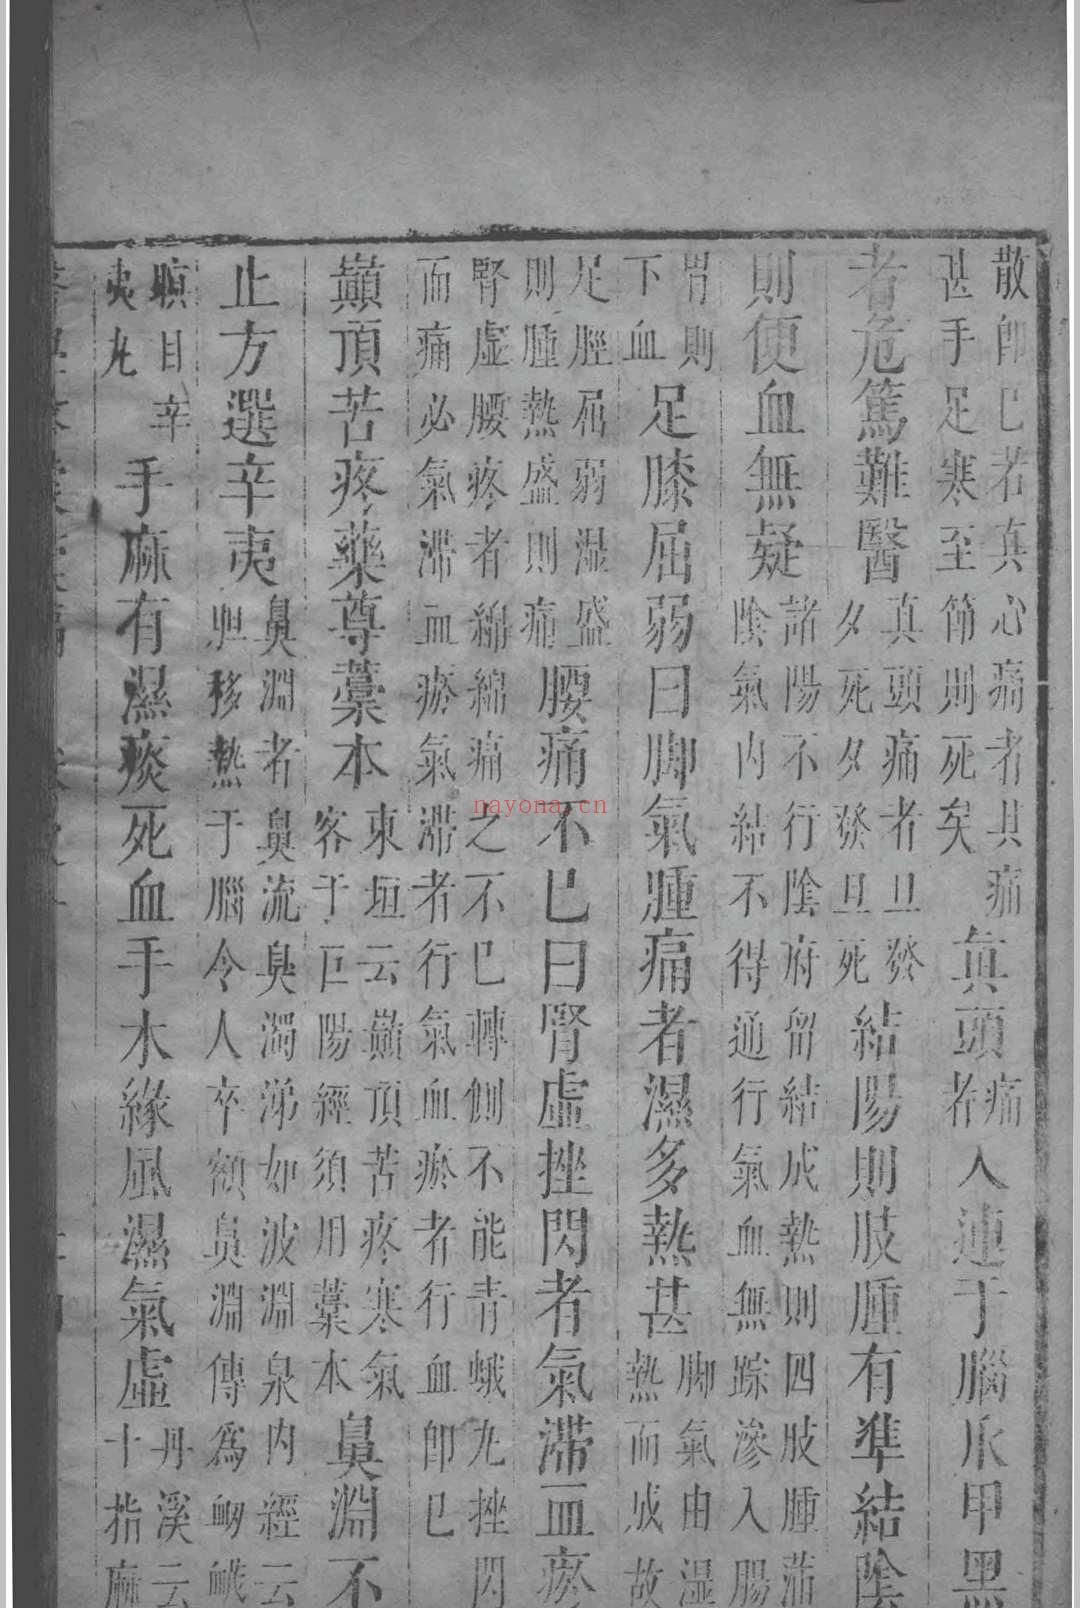 散即已若真心痛者具痛
甚手足寒至節則死矣
真頭痛者
入連于腦爪甲黑
者危篤難醫
真頭痛者旦發
夕死夕發旦死
結陽則肢腫有準結陰
則便血無疑
諸陽不行陰府留結成熱則四肢腫
陰氣內結不得通行氣血無踪滲入腸
胃則
下血
足膝屈弱曰脚氣腫痛者濕多熱甚
脚氣由湿
熱而成故
足脛屈弱湿盛
則腫熱盛則痛
腰痛不已曰腎虛挫閃者氣滯血瘀
腎虛腰疼者綿綿痛之不已轉側不能青蛾丸挫閃
而痛必氣滯血瘀氣滯者行氣血瘀者行血即已
巔頂苦疼藥尊藁本
東垣云巔頂苦疼寒氣
客于巨陽經須用藁本
鼻淵不
止方選辛夷
鼻淵者鼻流臭濁涕如波淵泉內經云
胆移熱于腦令人卒額鼻淵傳為衂衊
瞑目辛
夷丸
手麻有濕痰死血手木緣風濕氣虛
丹溪云
十指麻
nayona.cn